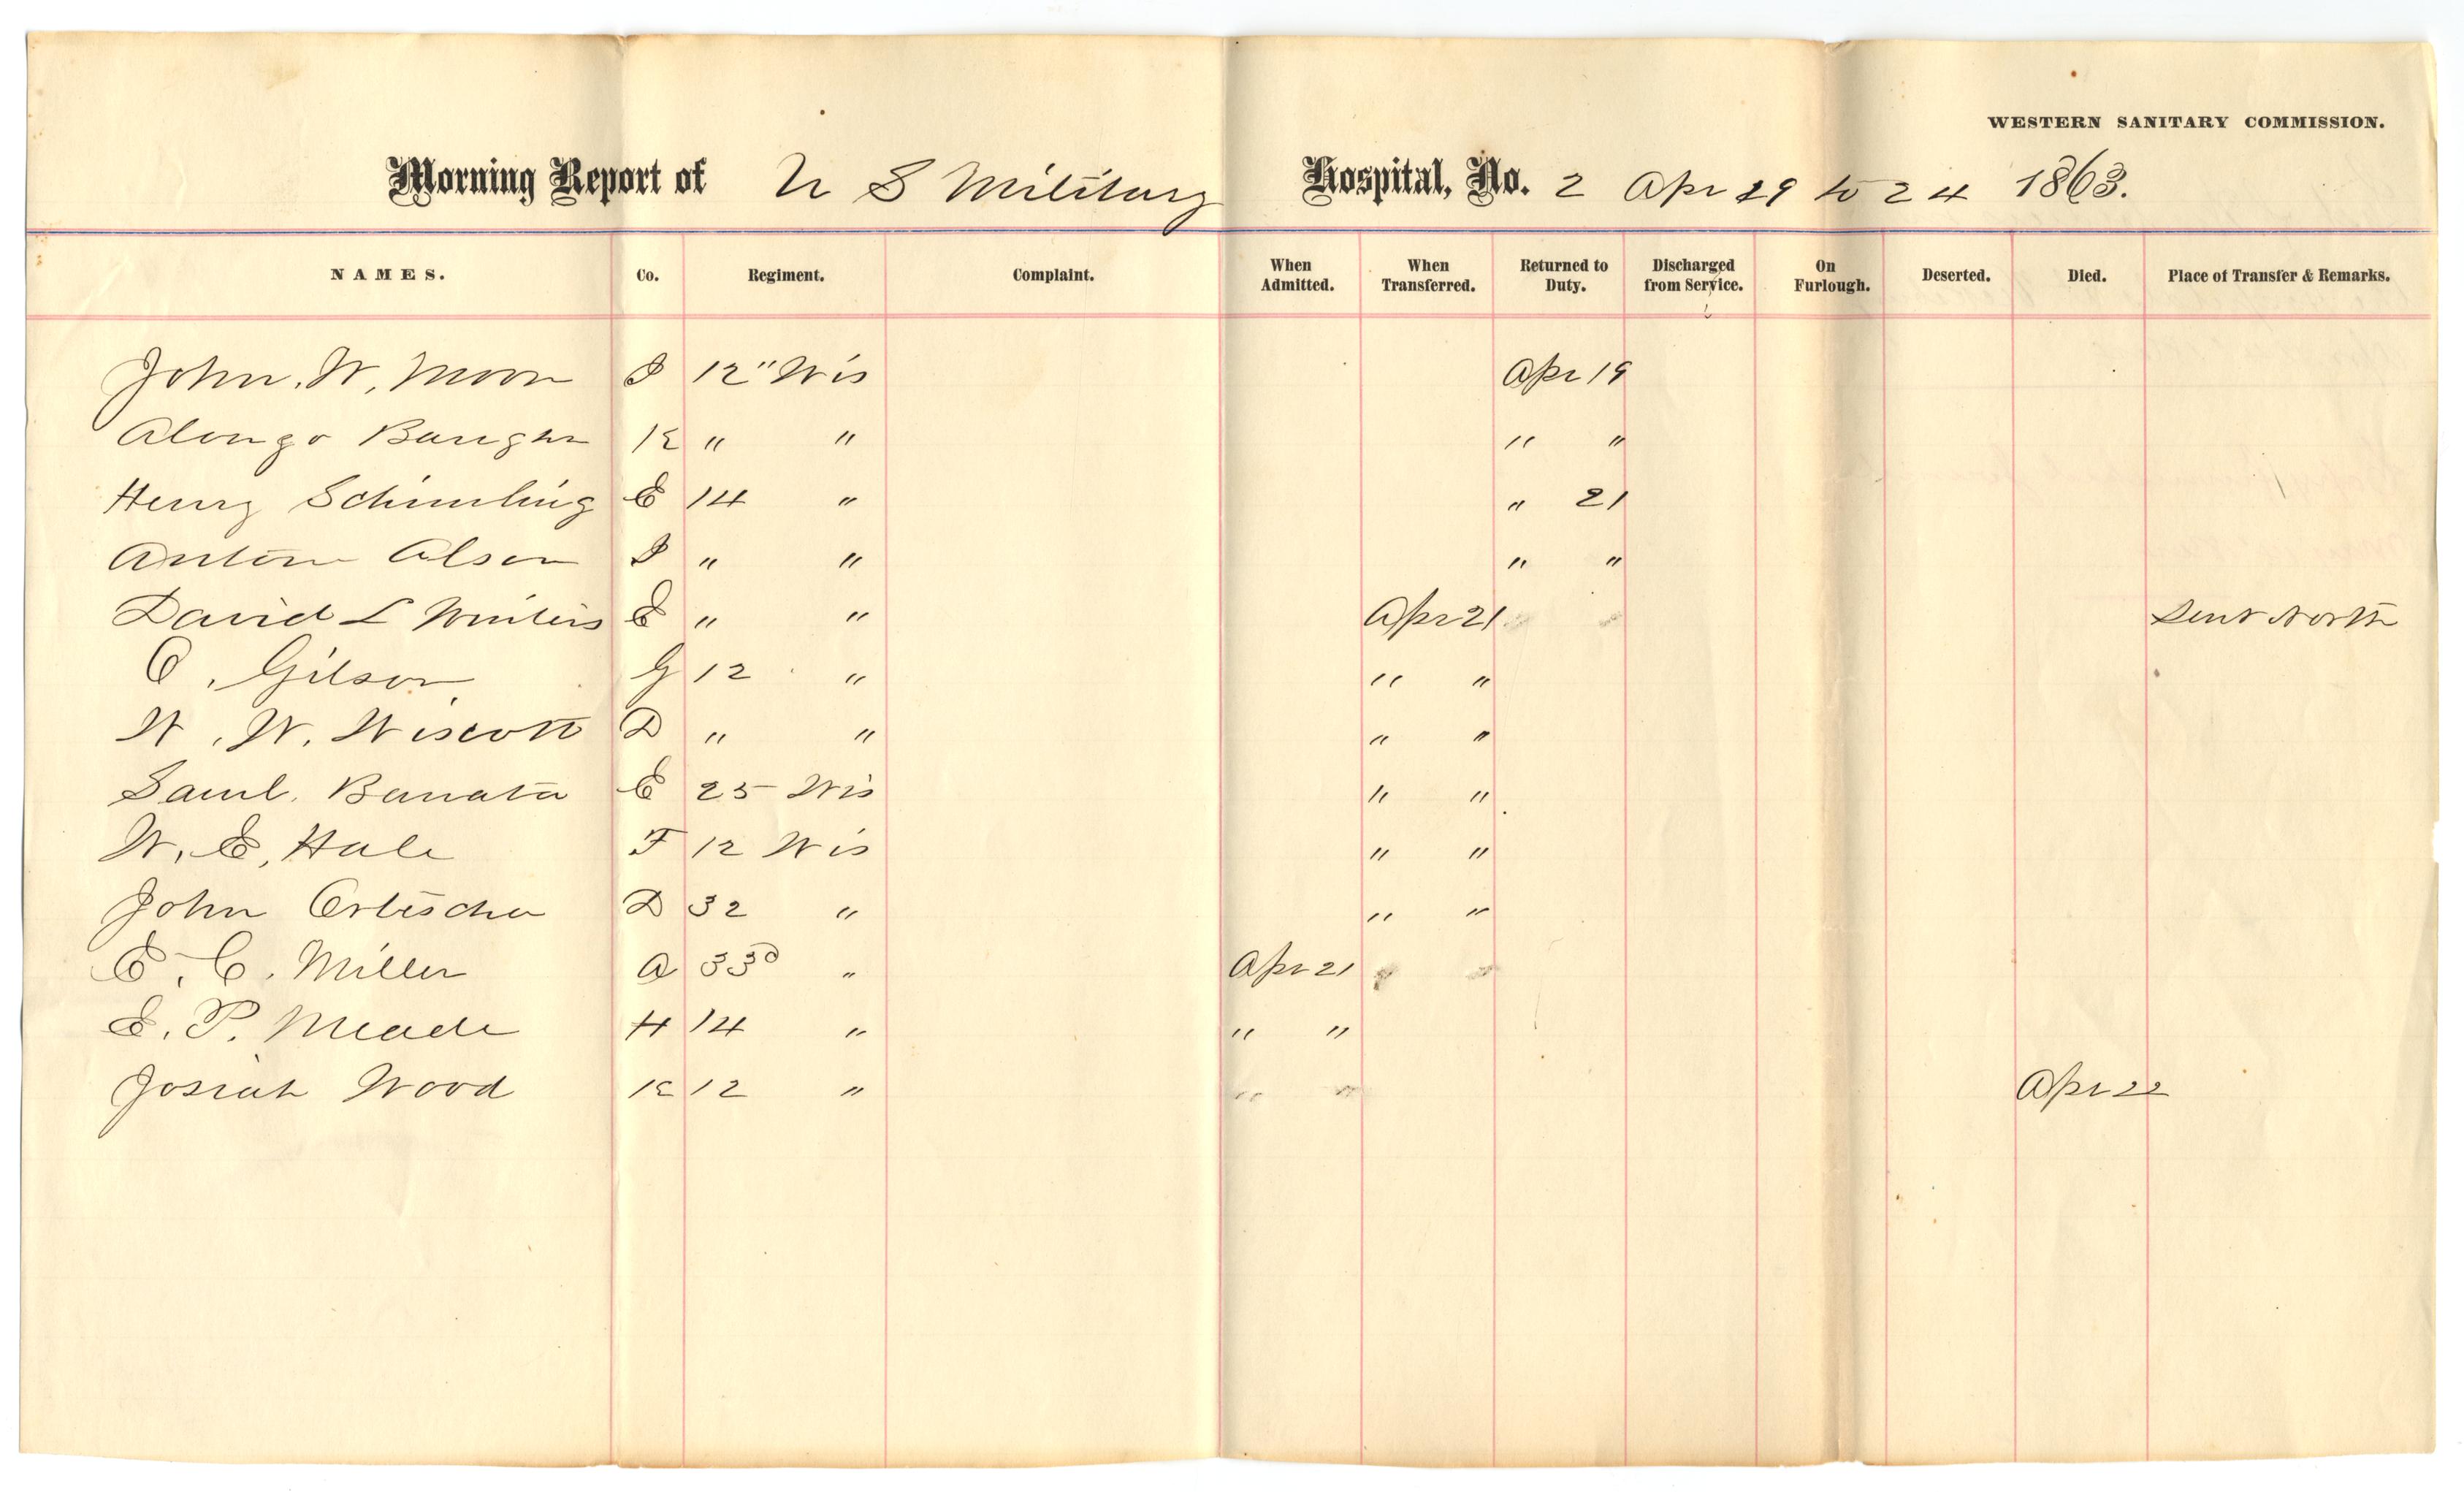 WESTERN SANITARY COMMISSION.
Morning Report of U S Military Hospital, No. 2 Apr 19 to 24 1863.
NAMES. Co. Regiment. Complaint. When Admitted. When Transferred. Returned to Duty. Discharged from Service. On Furlough. Deserted. Died. Place of Transfer & Remarks.
John. W. Moon I 12" Wis Apr 19
Alonzo K " " " "
Henry E 14 " " 21
Anton Olson I " " " "
David L Winters E " " Apr 21 Sent North
C. Gilson G 12 " " "
W. W. Wiscott D " " " "
Saml. E 25 Wis " "
W. E. Hale F 12 Wis " "
John D 32 " " "
E. C. Miller A 33d " Apr 21
E. P. Meade H 14 " " "
Josiah Wood K 12 " Apr 22